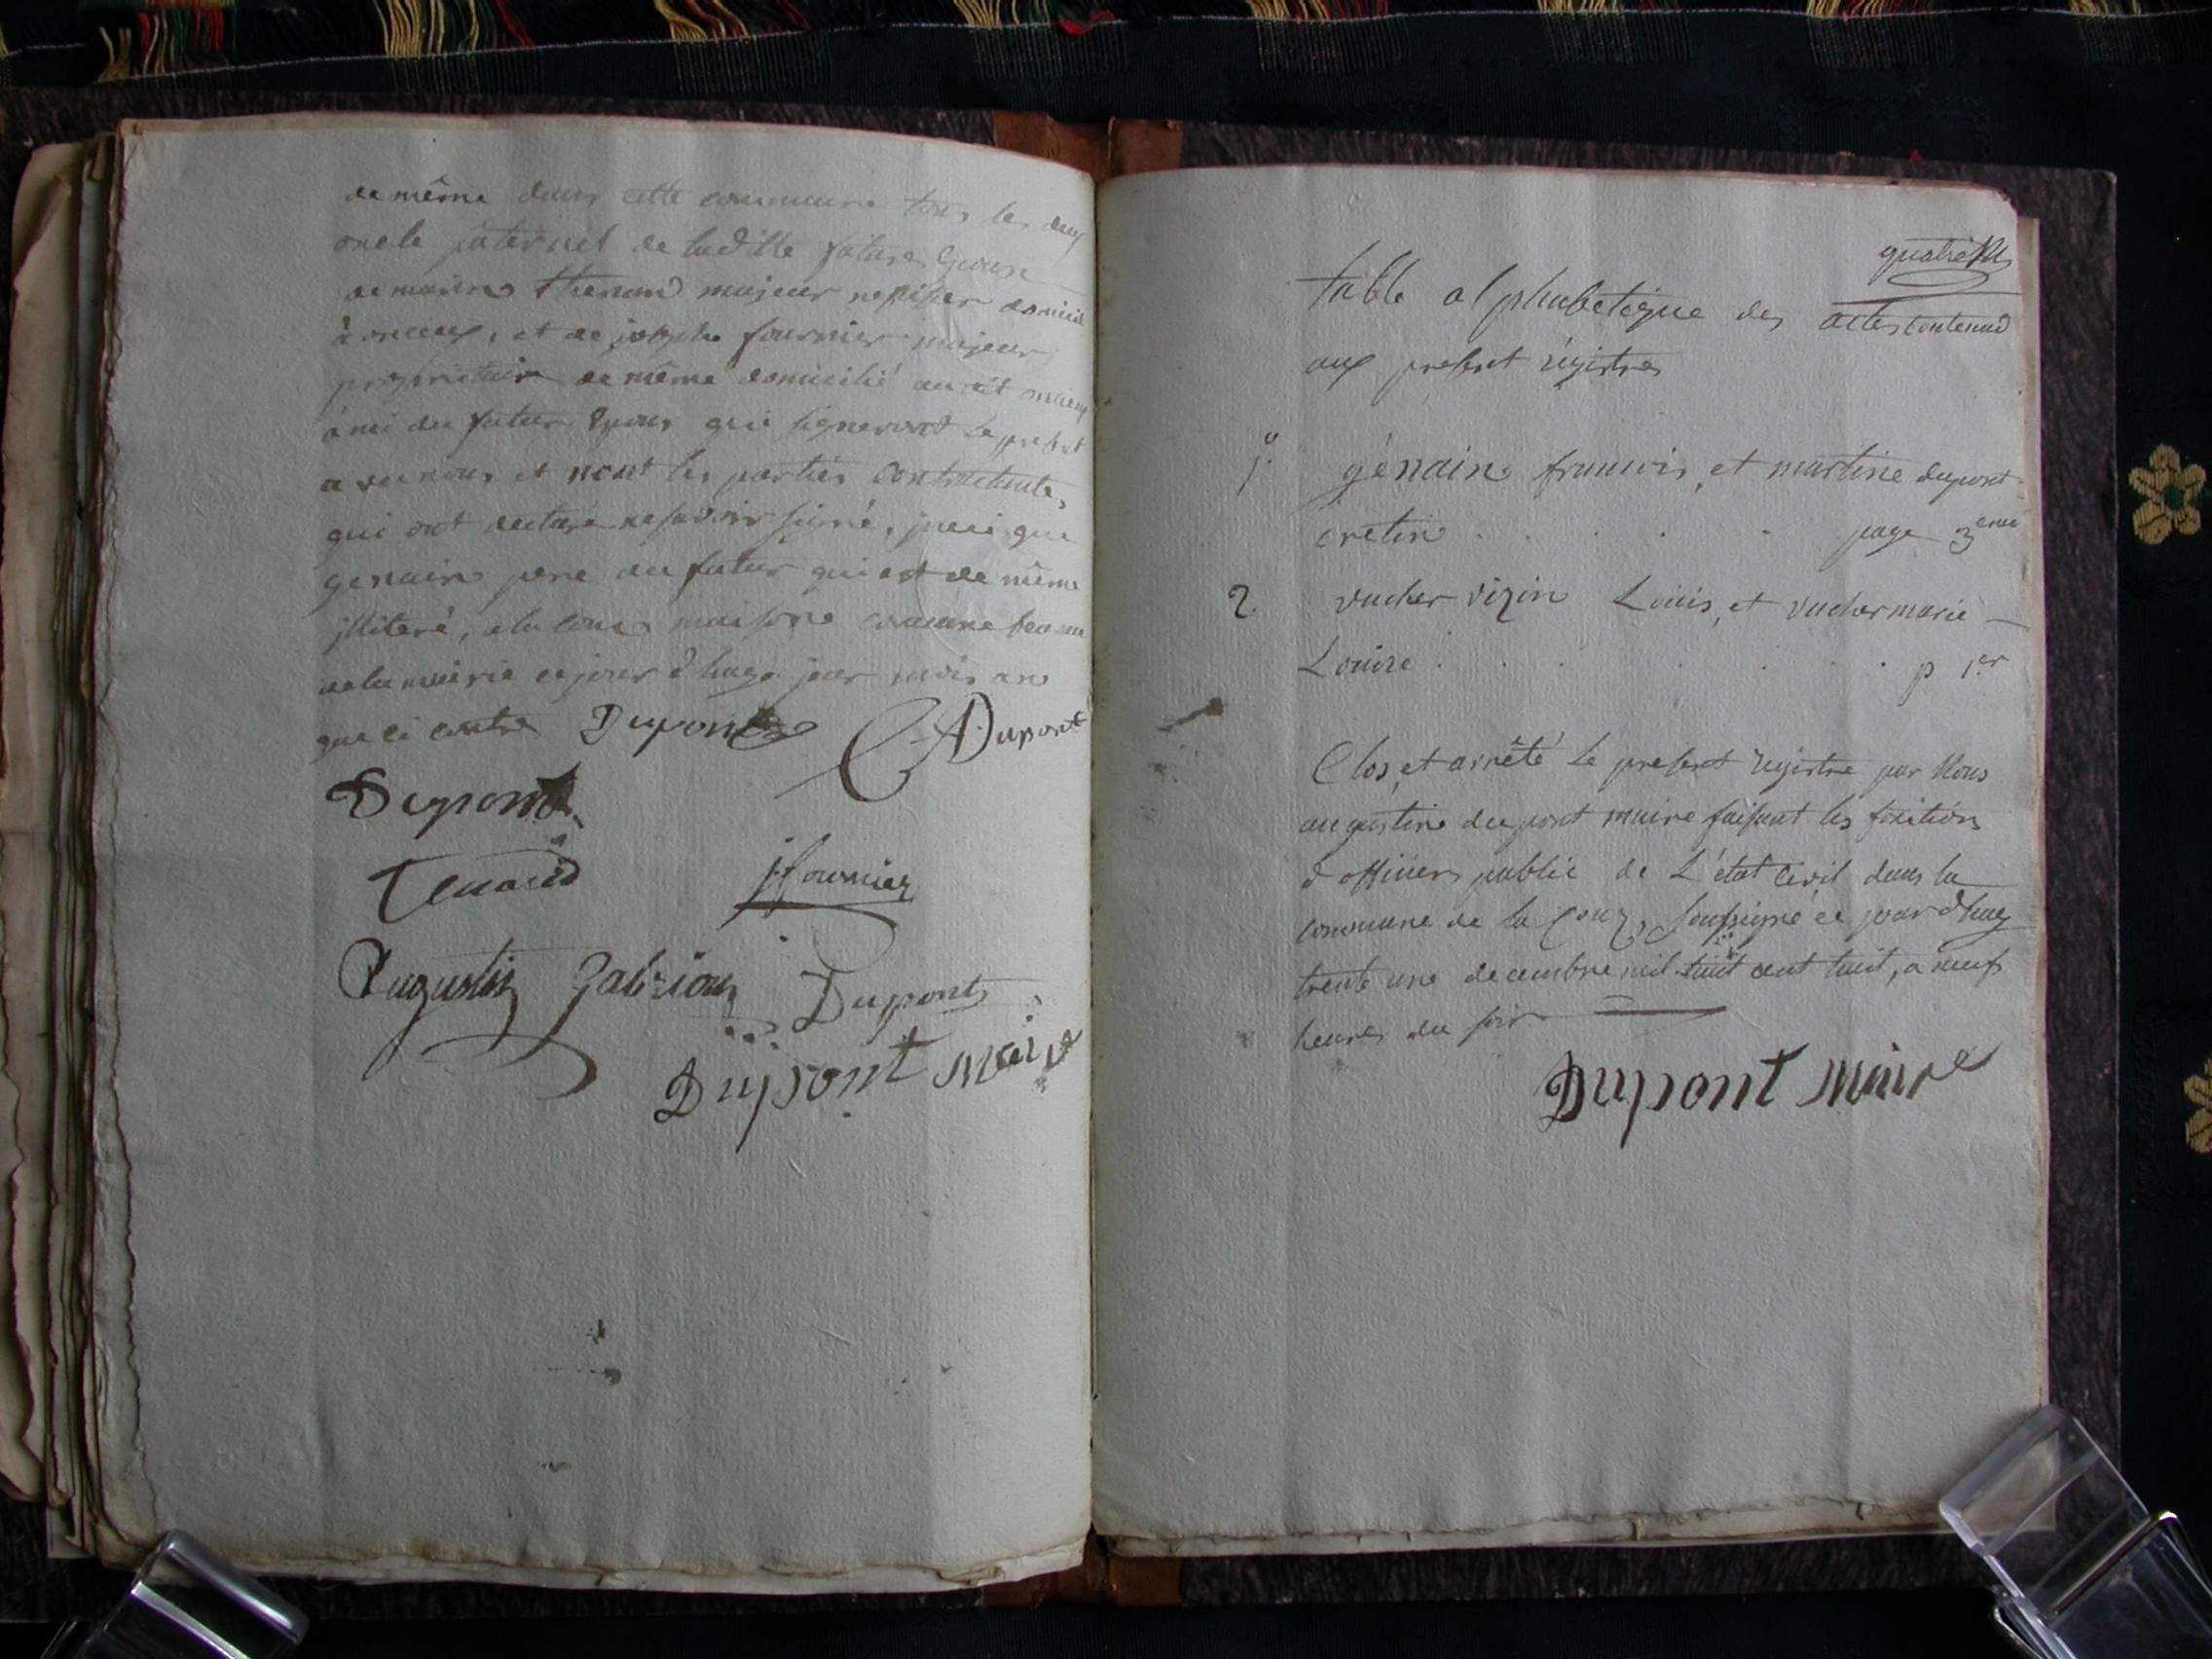 de même dans cette commune tous les deux
oncle paternel de laditte future Epouse
de marin thenard majeur domicil
à onceux, et de joseph fournier majeur
propriétaire de même domicilié audit
ami du futur Epoux qui signeront le present
avec nous et nont les parties contractantes
qui ont declaré ne savoir signé, que
genain pere du futur qui est de même
illiteré, a la maison commune
de la mairie ce jour d'huy jour mois an
que ci contre Dupont A Dupont
Dupont
Tenard jfournier
Augustin Dupont
Dupont Maire
quatre
table alphabetique des actes contenud
aux present régistres
1° génain francois, et martine dupont
cretin . . . . page 3eme
2. vucher vizin Louis, et vucher marie
Louise . . . . . . p 1er
Clos, et arrêté le present registre par Nous
augustine dupont maire faisant les fonctions
d officiers public de L'état Civil dans la
commune de la soussigné ce jour d'huy
trente une decembre mil huit cent huit, a neuf
heures du soir
Dupont Maire